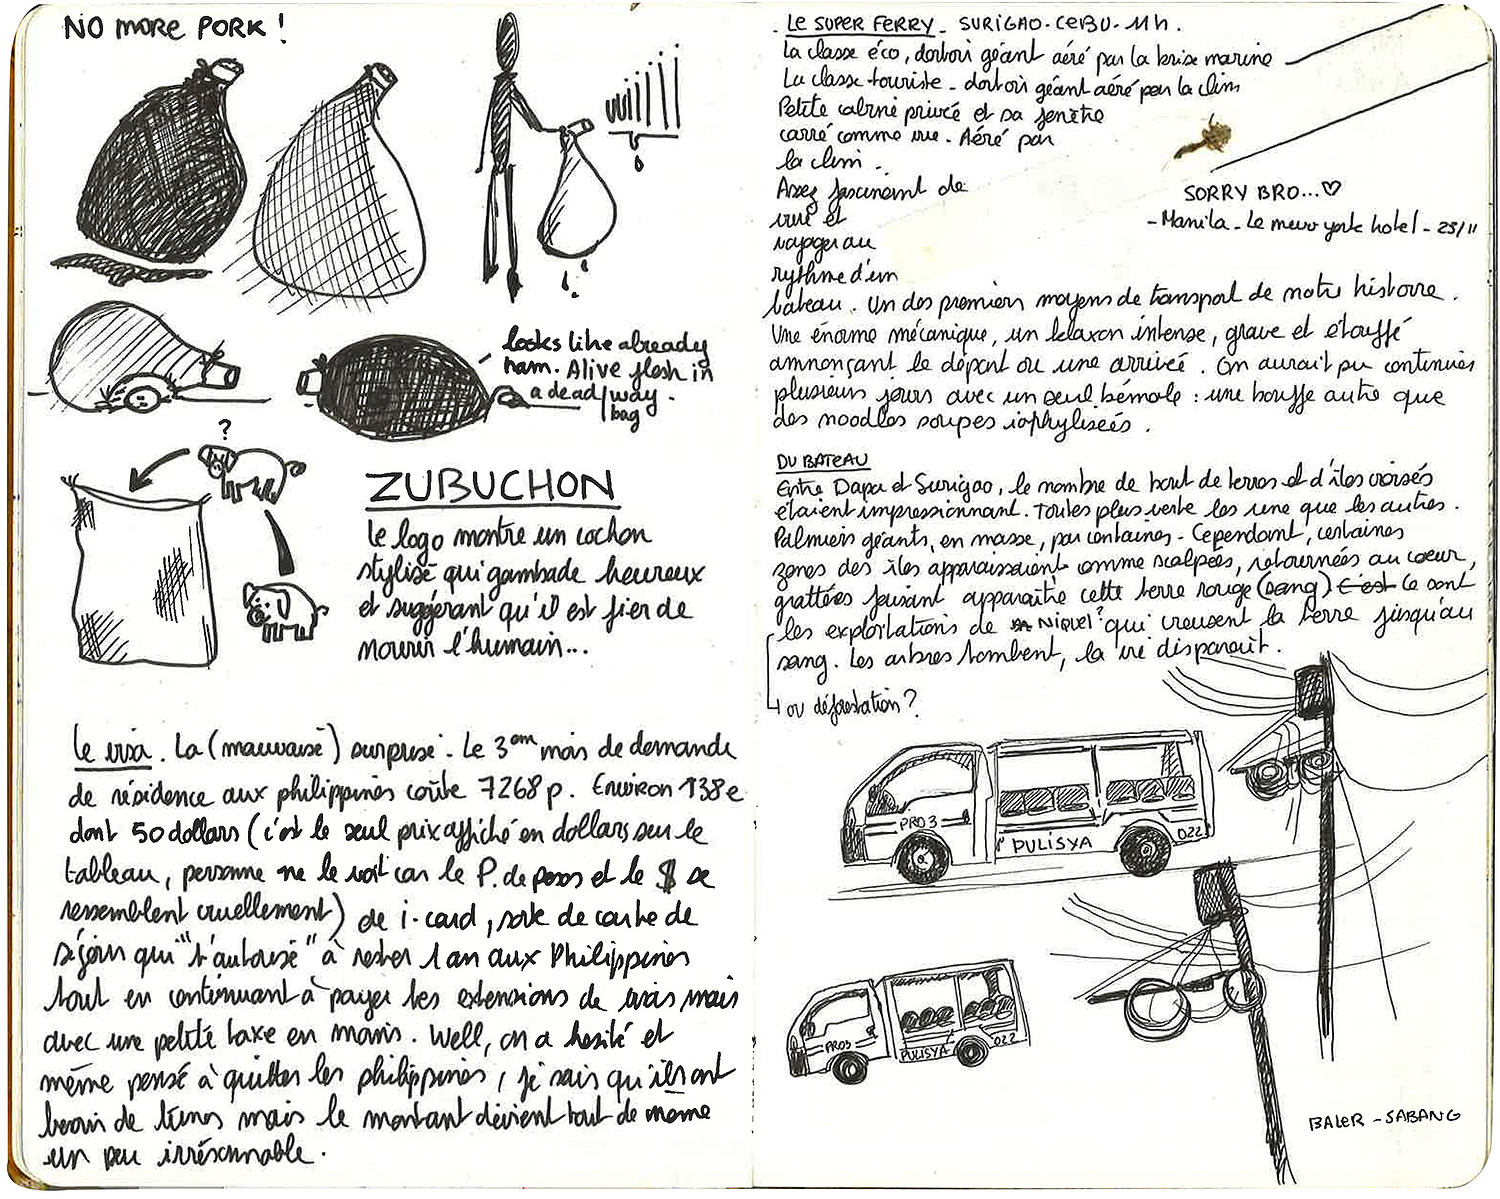 NO MORE PORK !
looks like already
ham. Alive flesh in
a dead/way.
bag
?
ZUBUCHON
Le logo montre un cochon
stylisé qui gambade heureux
et suggérant qu'il est fier de
nourrir l'humain...
Le visa. La (mauvaise) surprise. Le 3em mois de demande
de résidence aux philippines coûte 7268 p. Environ 138e
dont 50 dollars (c'est le seul prix affiché en dollars sur le
tableau, personne ne le voit car le P. de pesos et le $ se
ressemblent cruellement) de i-card, sorte de carte de
séjour qui "t'autorise" à rester 1 an aux Philippines
tout en continuant à payer les extensions de visas mais
avec une petite taxe en moins. Well, on a hésité et
même pensé à quitter les philippines, je sais qu'ils ont
besoin de tunes mais le montant devient tout de même
un peu irrésonnable.
. LE SUPER FERRY - SURIGAO-CEBU-11h.
La classe éco, dortoir géant aéré par la brise marine
La classe touriste - dortoir géant aéré par la clim
Petite cabine privée et sa fenêtre
carré comme vue. Aéré par
la clim.
Assez fascinant de
vivre et
voyager au
rythme d'un
bateau. Un des premiers moyens de transport de notre histoire.
Une énorme mécanique, un klaxon intense, grave et étouffé
annonçant le départ ou une arrivée. On aurait pu continuer
plusieurs jours avec un seul bémole : une bouffe autre que
des noodles soupes iophylisées.
SORRY BRO...♡
- Manila - Le new york hotel - 23/11
DU BATEAU
Entre Dapa et Surigao, le nombre de bout de terres et d'îles croisés
étaient impressionnant. Toutes plus verte les une que les autres.
Palmiers géants, en masse, par centaines - Cependant, certaines
zones des îles apparaissaient comme scalpées, retournées au coeur,
grattées faisant apparaître cette terre rouge (sang) C'est Ce sont
les exploitations de NIQUEL? qui creusent la terre jusqu'au
sang. Les arbres tombent, la vie disparait.
ou déforestation ?
PRO 3
PULISYA
022
PRO3
PULISYA
022
BALER - SABANG